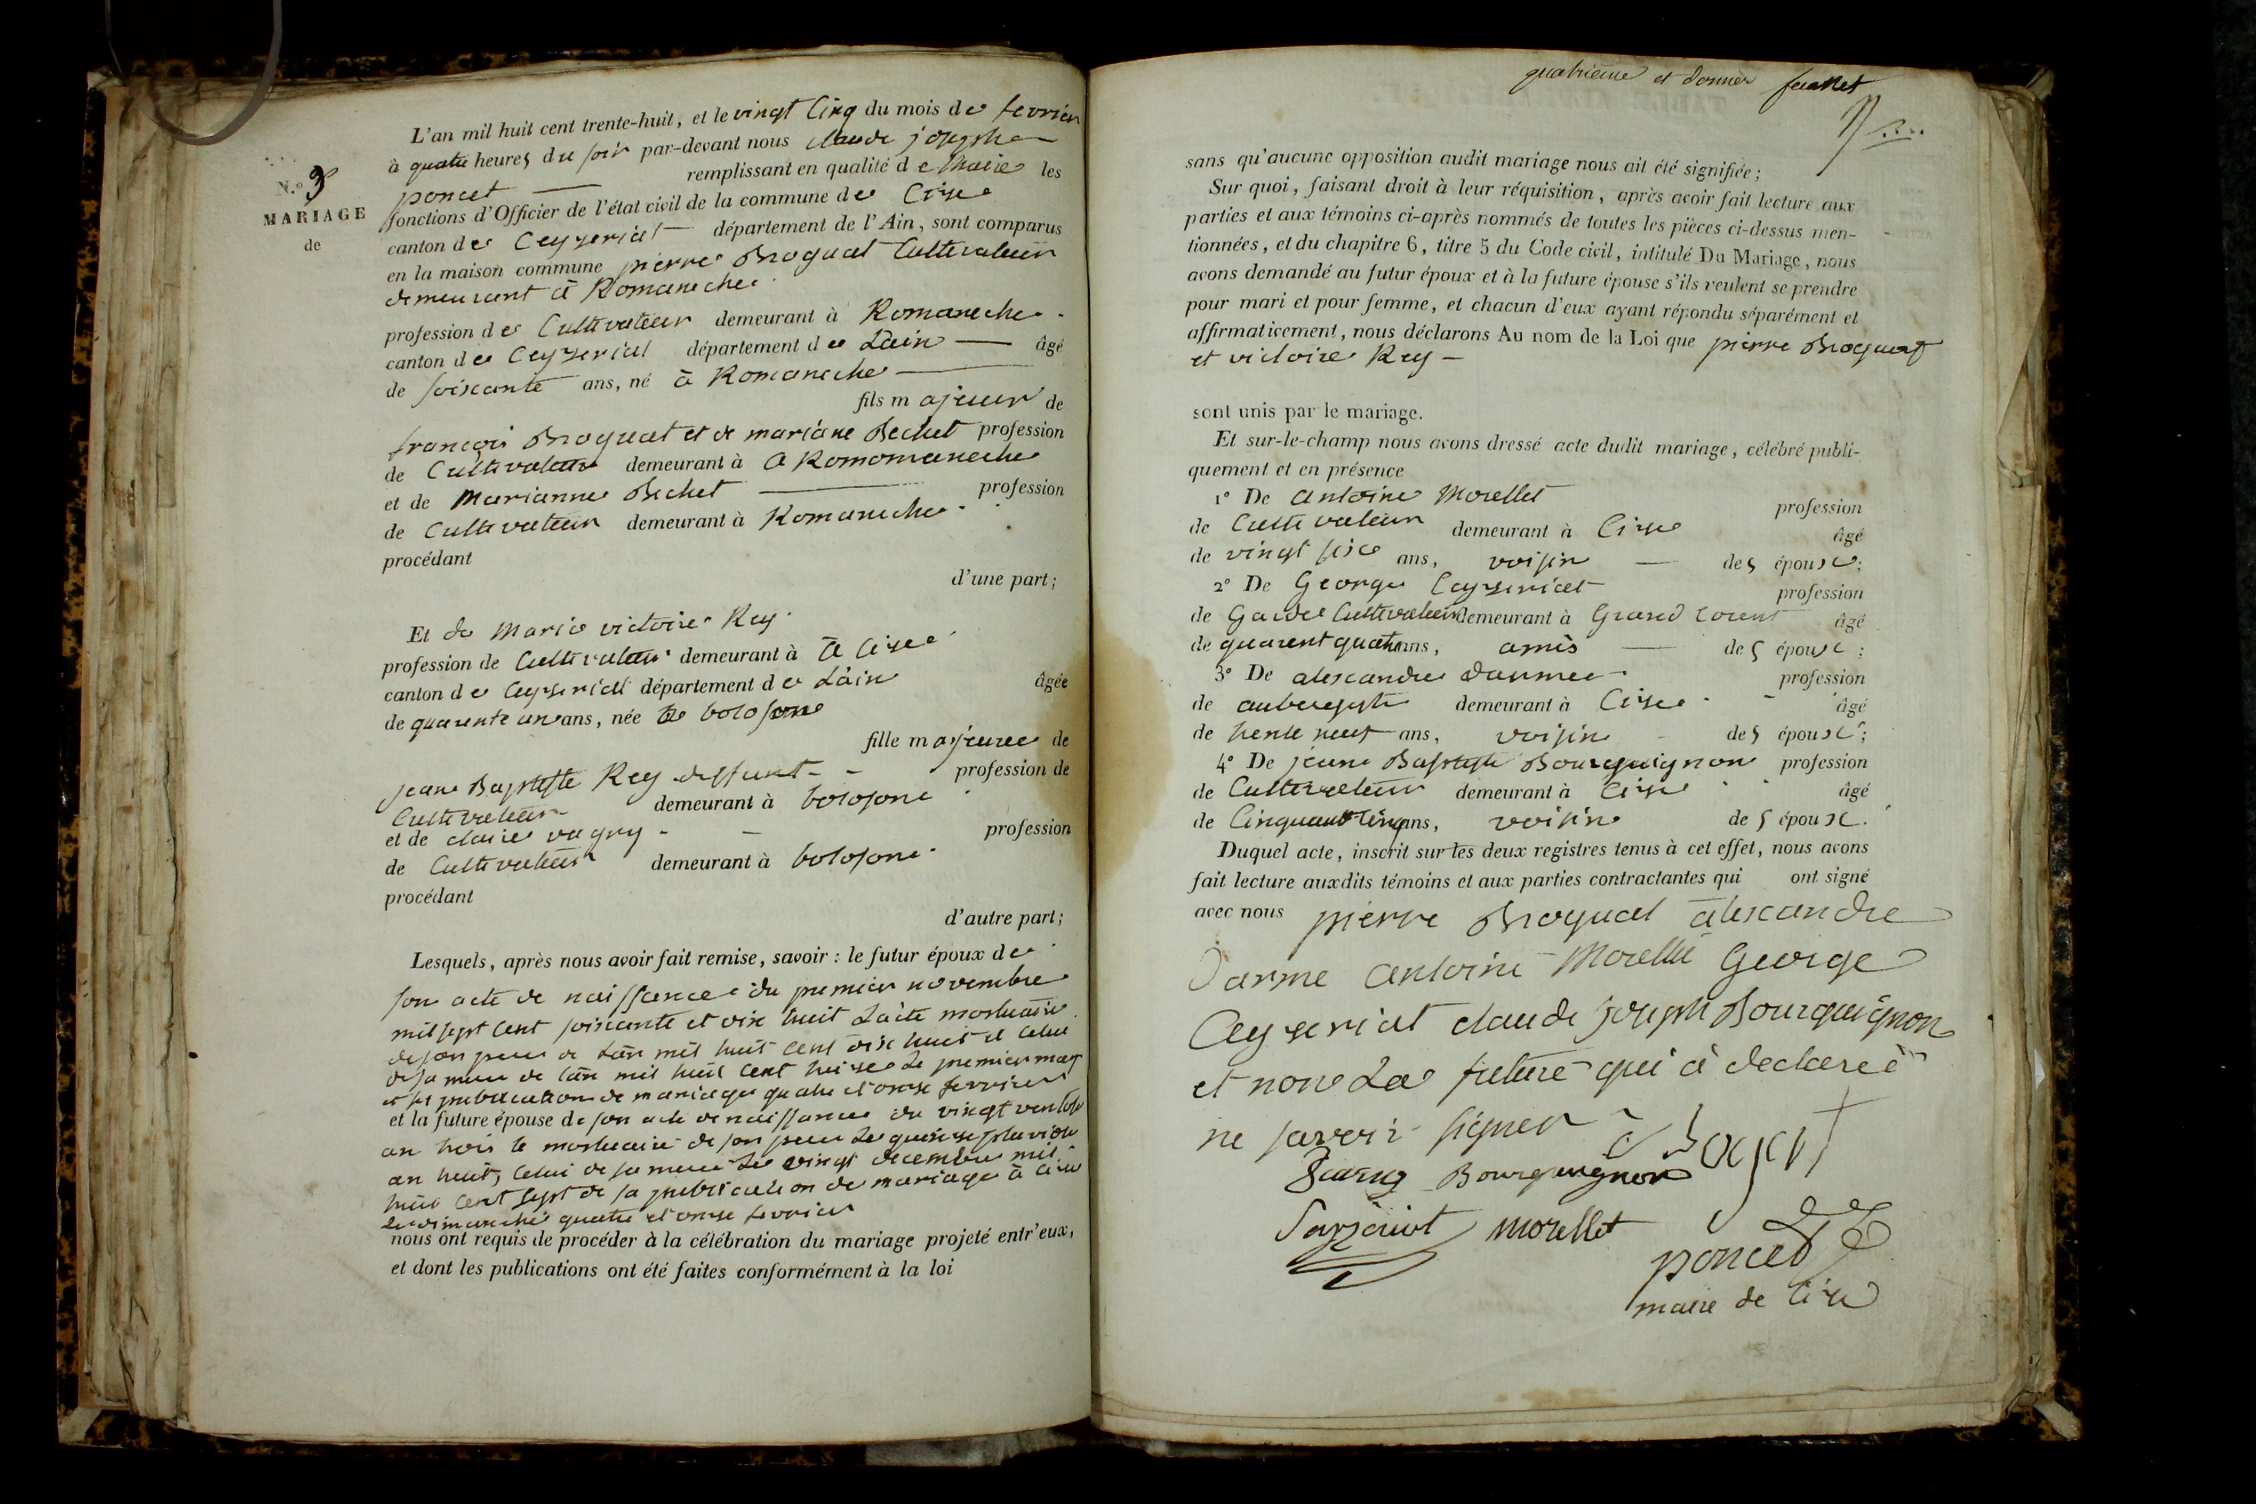 L'an mil huit cent trente-huit, et le vingt Cinq du mois de fevrier
à quatre heures du soir par-devant nous claude joseph
poncet remplissant en qualité de Maire les
N.o 3
MARIAGE
de
fonctions d'Officier de l'état civil de la commune de Cise
canton de Ceyzeriat département de l'Ain, sont comparus
en la maison commune pierre Broquat Cultivateur
demeurant à Romaneche
profession de Cultivateur demeurant à Romaneche
canton de Ceyzeriat département de Lain âgé
de soixante ans, né à Romaneche
fils majeur de
françois Broquat et de mariane Bechet profession
de Cultivateur demeurant à a Romomaneche
et de Marianne Bechet profession
de Cultivateur demeurant à Romaneche
procédant
d'une part;
Et de Marie victoire Rey
profession de Cultivateur demeurant à à Cise
canton de Ceyzeriat département de Lain âgée
de quarente un ans, née bolosone
fille majeuree de
jean Baptiste Rey deffunt profession de
Cultivateur demeurant à bolosone
et de claire vagny profession
de Cultivateur demeurant à bolosone
procédant
d'autre part;
Lesquels, après nous avoir fait remise, savoir : le futur époux de
son acte de naissance du premier novembre
mil sept cent soixante et dix huit Lacte mortuaire
de son pere de Lan mil huit cent dix huit et celui
de sa mere de lan mil huit cent treise Le premier mars
et publication de mariage quatre et onse fevrier
et la future épouse de son acte de naissance du vingt ventose
an trois le mortuaire de son pere Le quinse pluviose
an huit, Celui de sa mere Le vingt decembre mil
huit cent sept de sa publication de mariage à Cise
Le dimanche quatre et onse fevrier
nous ont requis de procéder à la célébration du mariage projeté entr'eux,
et dont les publications ont été faites conformément à la loi
quatrieme et dernier feuillet
sans qu'aucune opposition audit mariage nous ait été signifiée;
Sur quoi, faisant droit à leur réquisition, après avoir fait lecture aux
parties et aux témoins ci-après nommés de toutes les pièces ci-dessus men-
tionnées, et du chapitre 6, titre 5 du Code civil, intitulé Du Mariage, nous
avons demandé au futur époux et à la future épouse s'ils veulent se prendre
pour mari et pour femme, et chacun d'eux ayant répondu séparément et
affirmativement, nous déclarons Au nom de la Loi que pierre Broquat
et victoire Rey
sont unis par le mariage.
Et sur-le-champ nous avons dressé acte dudit mariage, célébré publi-
quement et en présence
1° De antoine Morellet profession
de Cultivateur demeurant à Cise âgé
de vingt six ans, voisin des époux;
2° De George Ceyzeriat profession
de Garde Cultivateur demeurant à Grand Corent âgé
de quarent quatre ans, amis des époux;
3° De alexandre darmee profession
de aubergiste demeurant à Cise âgé
de trente neuf ans, voisin des époux;
4° De jeane Baptiste Bourguignon profession
de Cultivateur demeurant à Cise âgé
de Cinquante Cinq ans, voisin des époux.
Duquel acte, inscrit sur les deux registres tenus à cet effet, nous avons
fait lecture auxdits témoins et aux parties contractantes qui ont signé
avec nous pierre Broquat alexandre
Darme antoine Morellet George
Ceyzeriat claude joseph Bourguignon
et none La future qui à declareé
ne savoir signer
Bourguignon
Morellet
poncet
maire de Cise